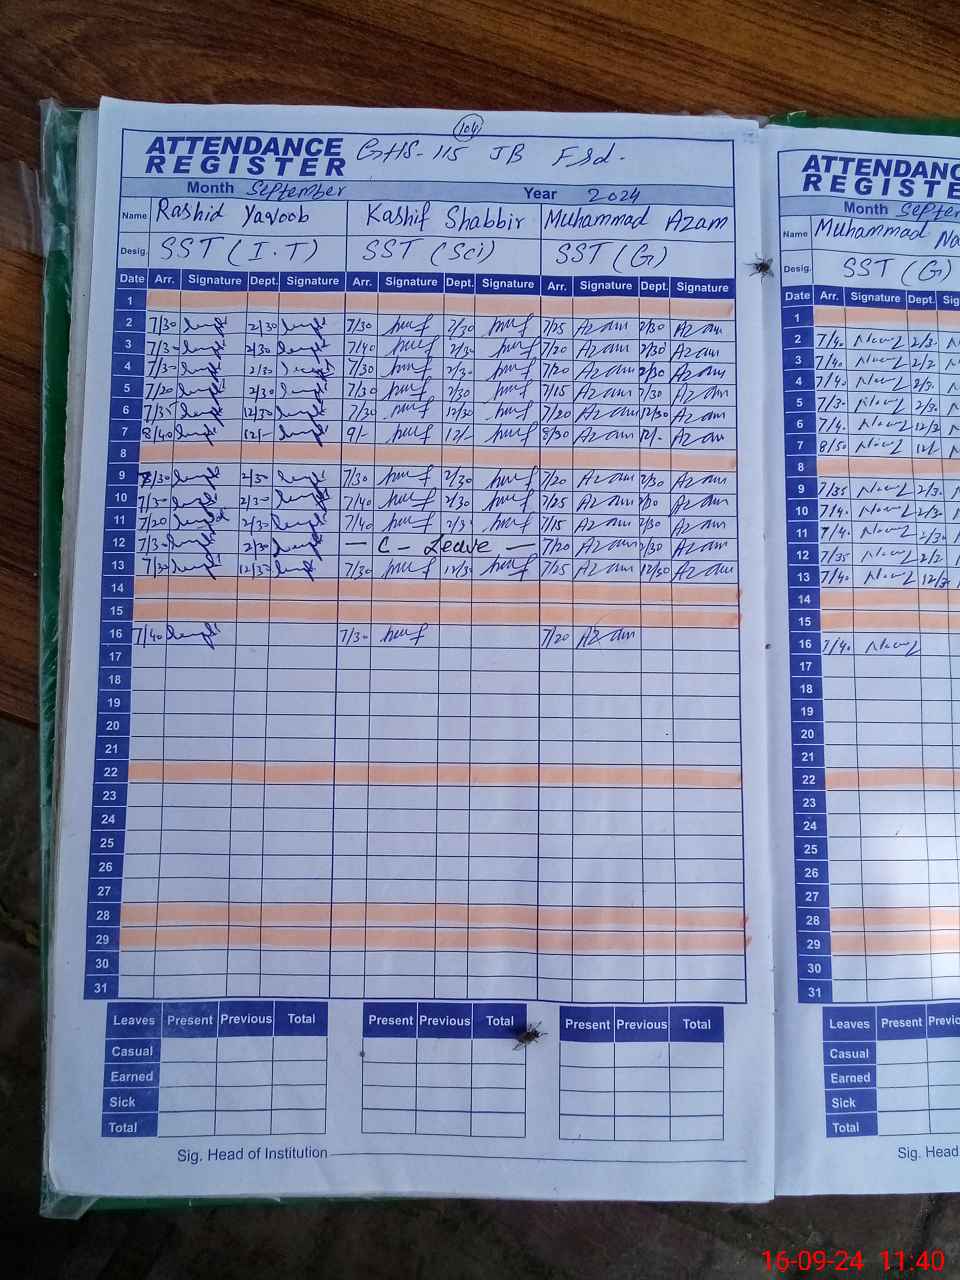 104
ATTENDANCE REGISTER GHS-115 JB Fsd.
Month September Year 2024
Name Rashid Yaqoob Kashif Shabbir Muhammad Azam
Desig. SST (I.T) SST (Sci) SST (G)
Date Arr. Signature Dept. Signature Arr. Signature Dept. Signature Arr. Signature Dept. Signature
1
2 7/30 2/30 7/30 2/30 7/25 Azam 2/30 Azam
3 7/30 2/30 7/40 2/30 7/20 Azam 2/30 Azam
4 7/30 2/30 7/30 2/30 7/20 Azam 2/30 Azam
5 7/20 2/30 7/30 2/30 7/15 Azam Azam
6 7/35 12/30 7/30 12/30 7/20 Azam 12/30 Azam
7 8/40 12/- 9/- 12/- 8/30 Azam 12/- Azam
8
9 7/30 2/30 7/30 2/30 7/20 Azam 2/30 Azam
10 7/30 2/30 7/40 2/30 7/25 Azam Azam
11 7/20 2/30 7/40 2/3 7/15 Azam 2/30 Azam
12 7/30 2/30 — C - Leave — 7/20 Azam 2/30 Azam
13 7/30 12/30 7/30 12/30 7/25 Azam 12/30 Azam
14
15
16 7/40 7/30 7/20 Azam
17
18
19
20
21
22
23
24
25
26
27
28
29
30
31
Leaves Present Previous Total Present Previous Total Present Previous Total
Casual
Earned
Sick
Total
Sig. Head of Institution
ATTENDANC
REGISTE
Month Septem
Name Muhammad Na
Desig. SST (G)
Date Arr. Signature Dept. Sig
1
2 7/40 2/30
3 7/40 2/2
4 7/40 2/3.
5 7/30 2/30
6 7/4. 12/3
7 8/50 12/
8
9 7/35 2/3.
10 7/4. 2/3.
11 7/4. 2/30
12 7/35 2/2
13 7/4. 12/3
14
15
16 7/4.
17
18
19
20
21
22
23
24
25
26
27
28
29
30
31
Leaves Present Previo
Casual
Earned
Sick
Total
Sig. Head
16-09-24 11:40